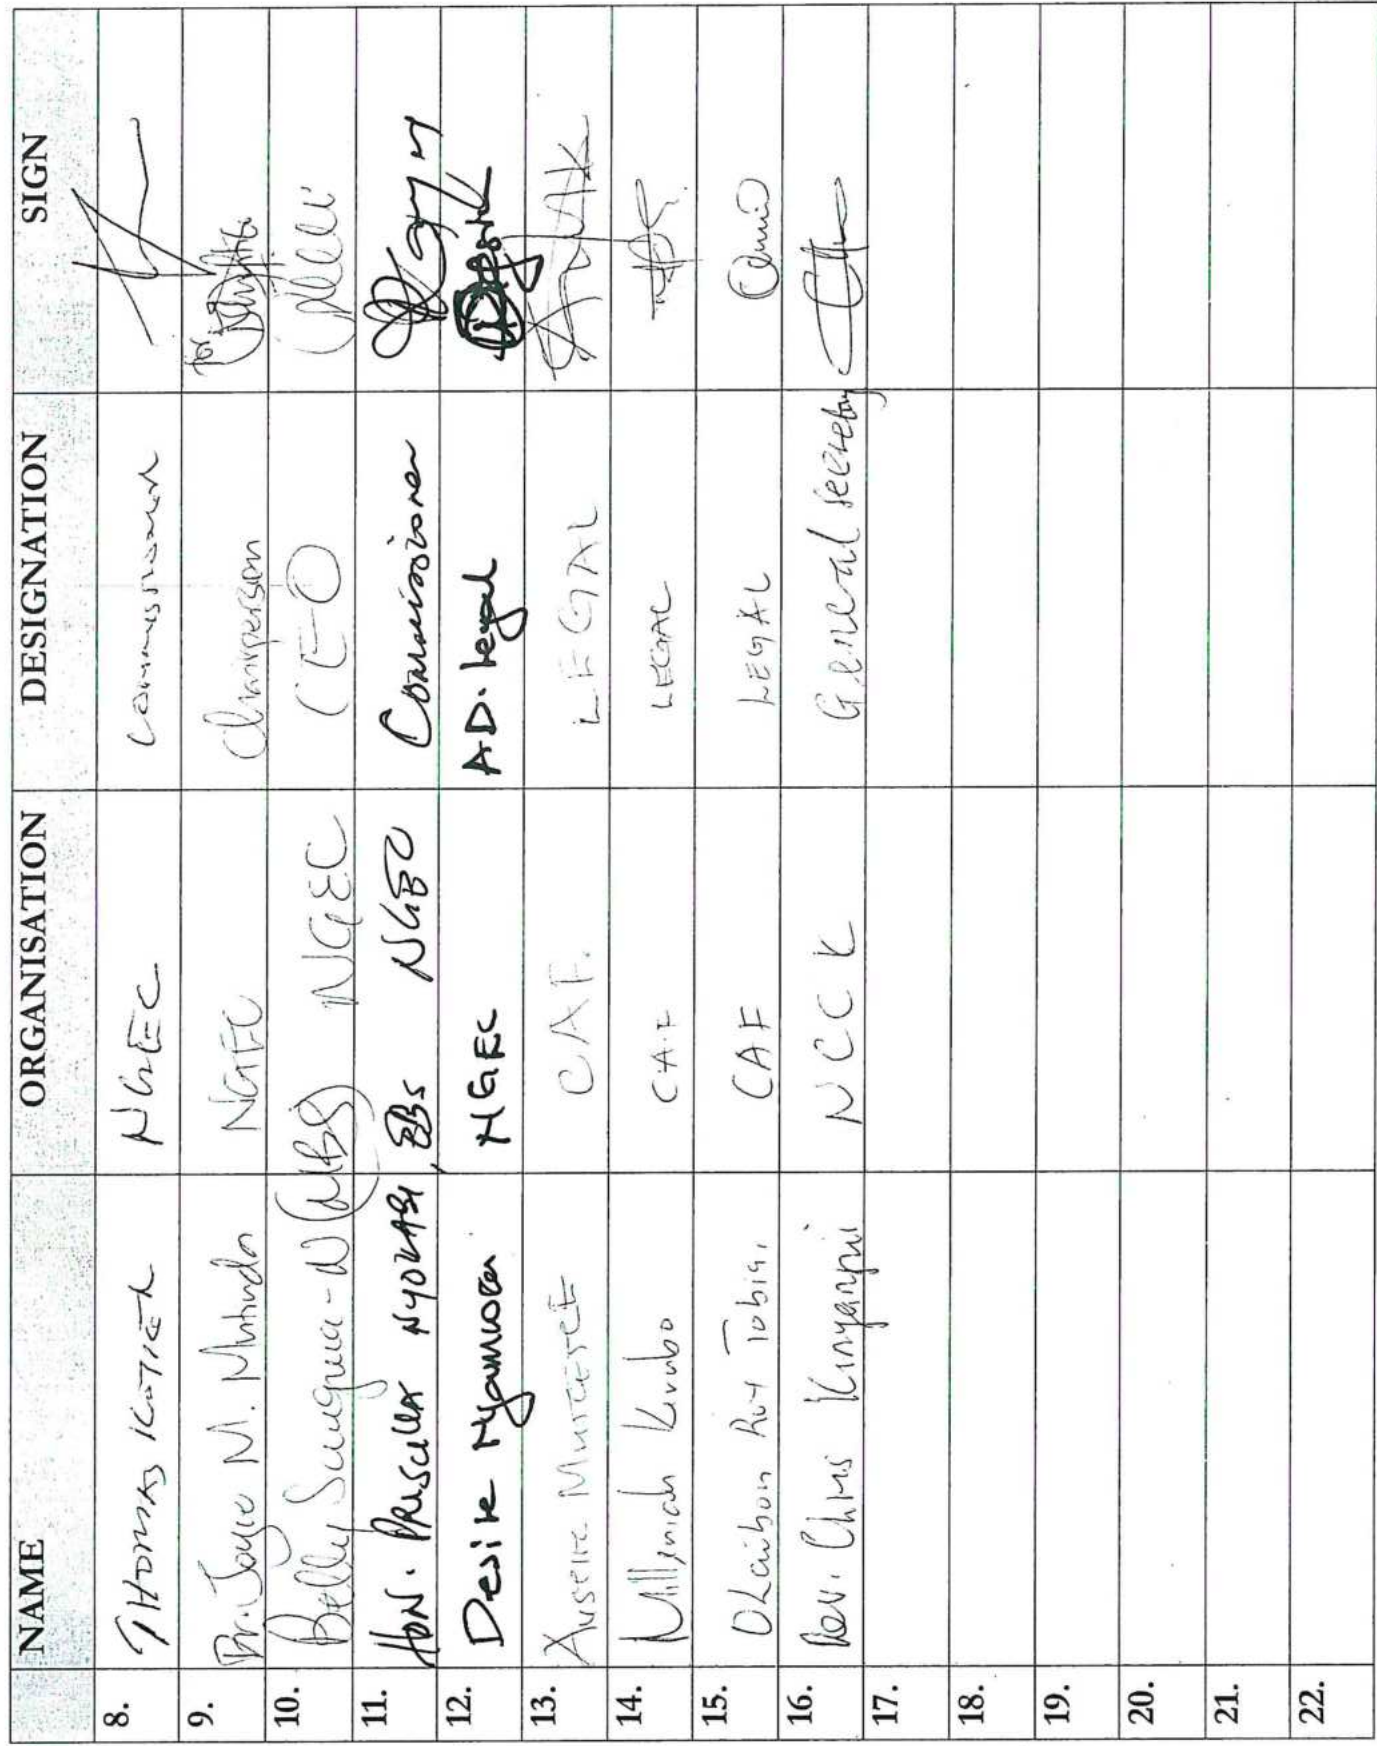 NAME ORGANISATION DESIGNATION SIGN
8. THOMAS NGEC Commissioner
9. Dr. Joyce M. Mutinda NGEC Chairperson
10. Betty Sungura-W (MBS) NGEC CEO
11. HON. PRISCILLA NYOKABI, EBS NGEC Commissioner
12. Desire Nyamwea NGEC AD. Legal
13. CAF. LEGAL
14. Millicah Kerubo CA.F LEGAL
15. OLaibon Roy Tobia, CAF LEGAL
16. Rev. Chris Kinyanjui NCCK General Secretary
17.
18.
19.
20.
21.
22.